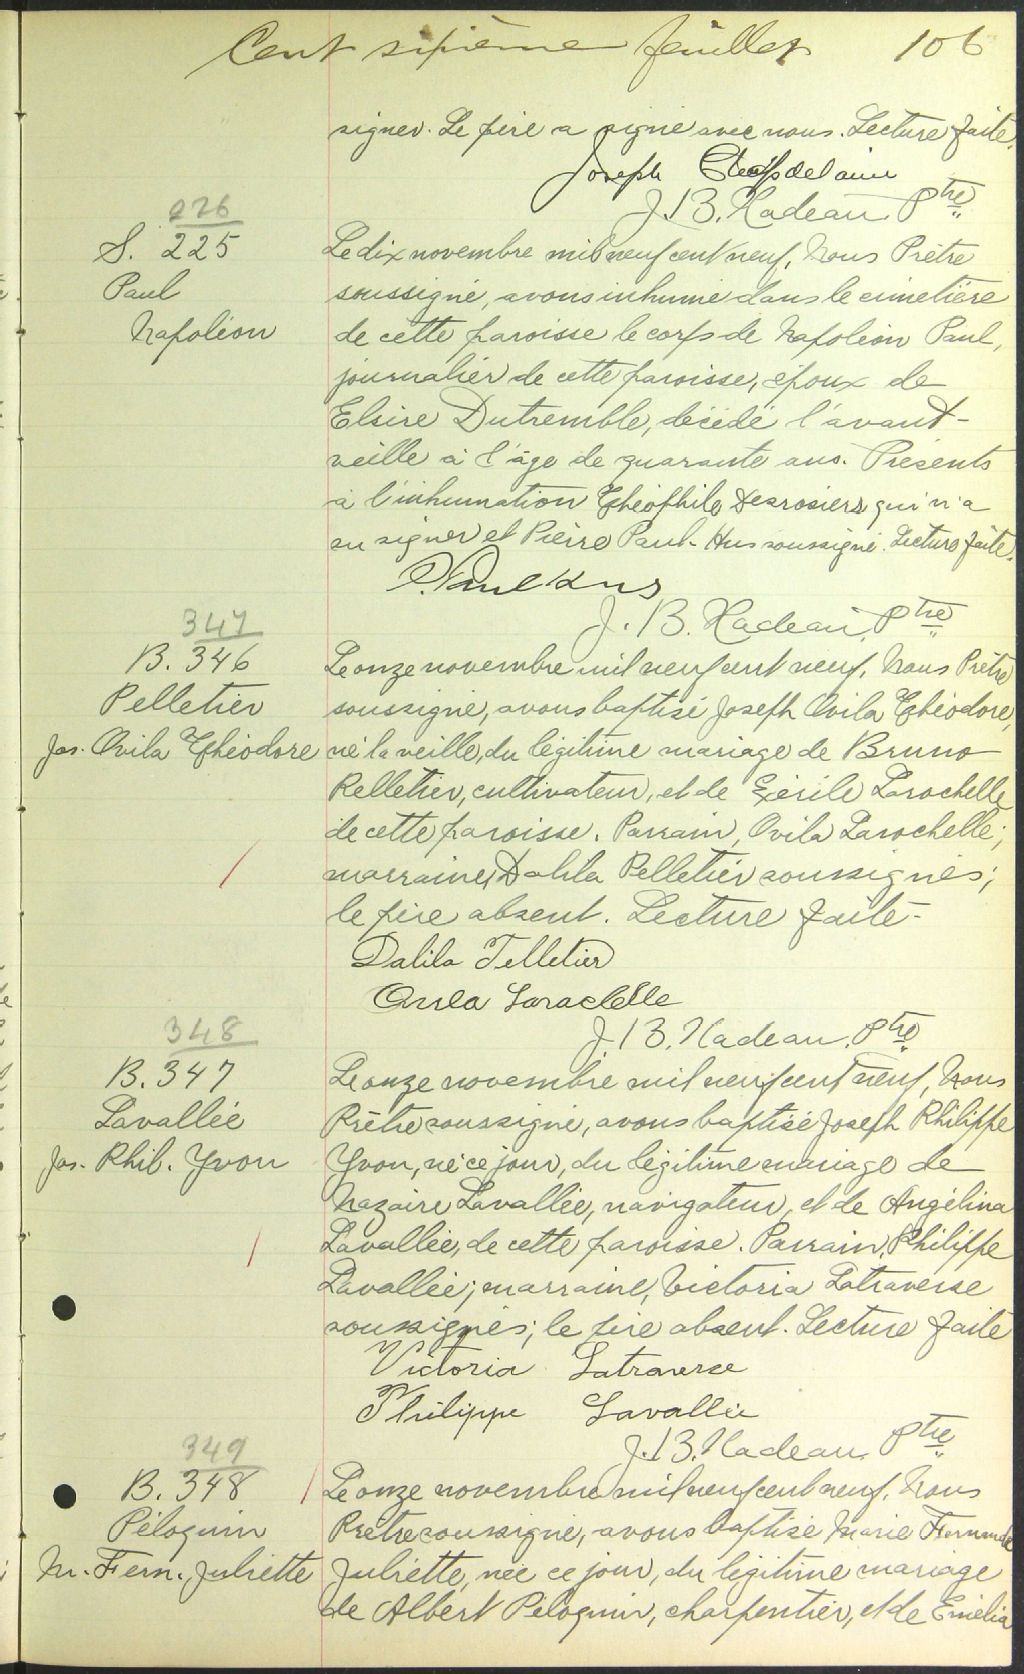 Cent sixième feuillet 106
signer. Le père a signé avec nous. Lecture faite.
Joseph Chapdelaine
J. B. Nadeau, Ptre
226
S. 225
Paul
Napoléon
Le dix novembre mil neuf cent neuf, Nous Prêtre
soussigné, avons inhumé dans le cimetière
de cette paroisse le corps de Napoléon Paul,
journalier de cette paroisse, époux de
Elzire Dutremble, décédé l'avant-
veille à l'âge de quarante ans. Présents
à l'inhumation Théophile Desrosiers qui n'a
su signer et Pierre Paul-Hus soussigné. Lecture faite.
P. Paul Hus
J. B. Nadeau, Ptre
347
B. 346
Pelletier
Jos. Ovila Théodore
Le onze novembre mil neuf cent neuf, Nous Prêtre
soussigné, avons baptisé Joseph Ovila Théodore,
né la veille, du légitime mariage de Bruno
Pelletier, cultivateur, et de Exérile Larochelle
de cette paroisse. Parrain, Ovila Larochelle;
marraine, Dalila Pelletier soussignés;
le père absent. Lecture faite-
Dalila Pelletier
Ovila Larochelle
J. B. Nadeau, Ptre
348
B. 347
Lavallée
Jos. Phil. Yvon
Le onze novembre mil neuf cent neuf, Nous
Prêtre soussigné, avons baptisé Joseph Philippe
Yvon, né ce jour, du légitime mariage de
Nazaire Lavallée, navigateur, et de Angélina
Lavallée, de cette paroisse. Parrain, Philippe
Lavallée; marraine, Victoria Latraverse
soussignés; le père absent. Lecture faite
Victoria Latraverse
Philippe Lavallée
J. B. Nadeau, Ptre
349
B. 348
Péloquin
M. Fern. Juliette
Le onze novembre mil neuf cent neuf, Nous
Prêtre soussigné, avons baptisé Marie Fernande
Juliette, née ce jour, du légitime mariage
de Albert Péloquin, charpentier, et de Emélia